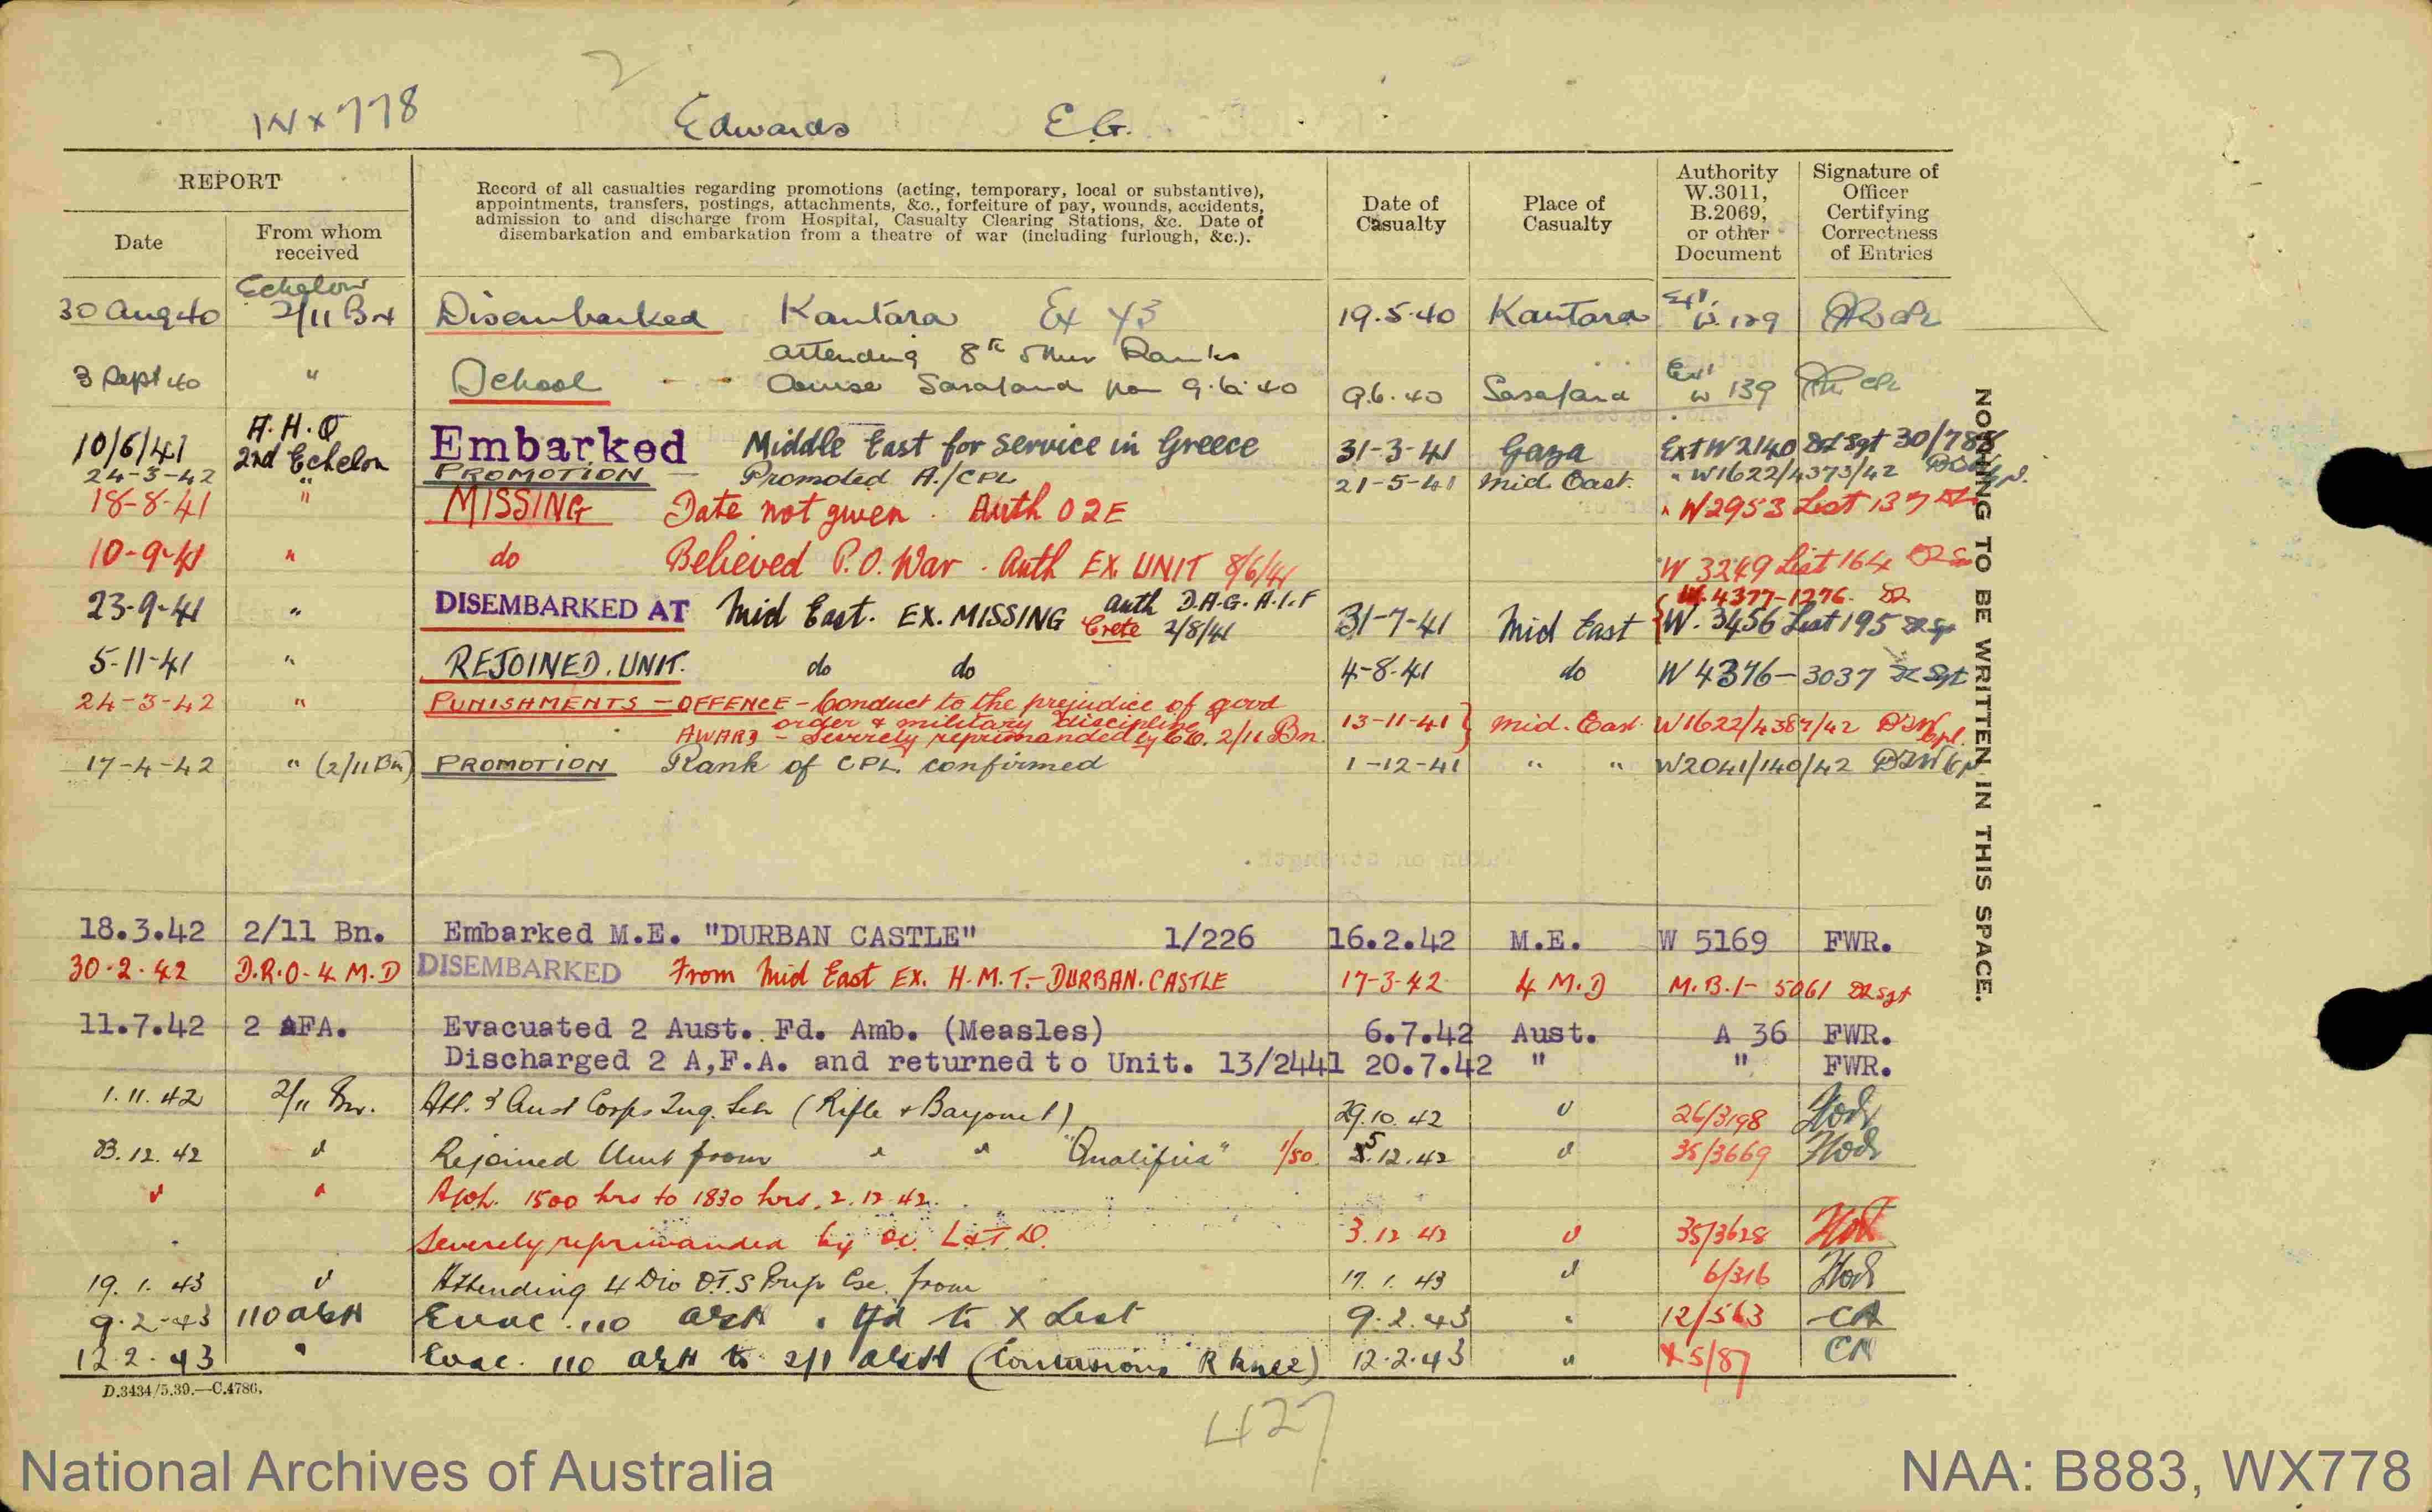 2
WX778 Edwards E G.
REPORT
Date
From whom received
Record of all casualties regarding promotions (acting, temporary, local or substantive),
appointments, transfers, postings, attachments, &c., forfeiture of pay, wounds, accidents,
admission to and discharge from Hospital, Casualty Clearing Stations, &c. Date of
disembarkation and embarkation from a theatre of war (including furlough, &c.).
Date of Casualty
Place of Casualty
Authority W.3011, B.2069, or other Document
Signature of Officer Certifying Correctness of Entries
Echelon
30 Aug 40 2/11 Bn Disembarked Kantara Ex Y3 19.5.40 Kantara W.129
attending 8th Other Ranks
3 Sept 40 " School Course Sarafand 9.6.40 9.6.40 Sarafand W 139
10/6/41 A.H.Q 2nd Echelon Embarked Middle East for service in Greece 31-3-41 Gaza Ext W2140 Sgt 30/788
24-3-42 " PROMOTION - Promoted A./CPL 21-5-41 Mid. East. " W1622/4373/42
18-8-41 " MISSING Date not given. Auth O2E " W2953 List 137
10-9-41 " do Believed P.O. War. Auth EX. UNIT 8/6/41 W 3249 List 164
W. 4377-1276.
23-9-41 " DISEMBARKED AT Mid East. EX. MISSING Crete auth D.A.G. A.I.F 2/8/41 31-7-41 Mid East W. 3456 List 195
5-11-41 " REJOINED. UNIT. do do 4-8-41 do W 4376-3037 Sgt
24-3-42 " PUNISHMENTS - OFFENCE - Conduct to the prejudice of good
order & military discipline
AWARD - Severely reprimanded by C.O. 2/11 Bn. 13-11-41 Mid. East. W1622/4387/42
17-4-42 " (2/11 Bn) PROMOTION Rank of CPL. confirmed 1-12-41 " " W2041/140/42
18.3.42 2/11 Bn. Embarked M.E. "DURBAN CASTLE" 1/226 16.2.42 M.E. W 5169 FWR.
30-2-42 D.R.O-4 M.D DISEMBARKED From Mid East EX. H.M.T.-DURBAN.CASTLE 17-3-42 4 M.D M.B.1- 5061 Sgt
11.7.42 2 AFA. Evacuated 2 Aust. Fd. Amb. (Measles) 6.7.42 Aust. A 36 FWR.
Discharged 2 A,F.A. and returned to Unit. 13/2441 20.7.42 " " FWR.
1.11.42 2/11 Bn. Att. 3 Aust Corps Trg. Sch (Rifle & Bayonet) 29.10.42 " 26/3198
3.12.42 " Rejoined Unit from " " "Qualified" 1/50 5.12.42 " 35/3669
" " AWL. 1500 hrs to 1830 hrs, 2.12.42.
Severely reprimanded by 3.12.42 " 35/3628
19.1.43 " Attending 4 Div O.T.S Prep Cse. from 17.1.43 " 6/316
9.2.43 110 AGH Evac. 110 AGH. tfd to X List 9.2.43 " 12/563 CA
12.2.43 " Evac. 110 AGH to 2/1 AGH (Contusions R knee) 12.2.43 " X5/87 CA
D.3434/5.39.—C.4786.
NOTHING TO BE WRITTEN IN THIS SPACE.
427
National Archives of Australia
NAA: B883, WX778